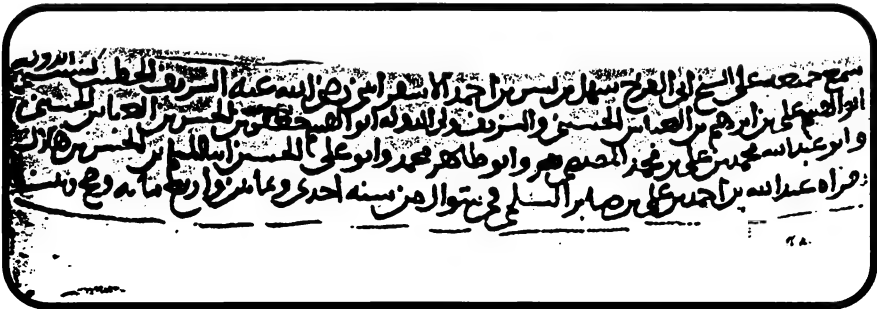 سمع جميعه على الشيخ ابى الفرج سهل بن بشر بن احمد الاسفرائني رضى الله عنه الشريف الخطيب نسيب الدولة
ابو القسم على بن ابرهيم بن العباس الحسينى والشريف ولى الدولة ابو القسم بن الحسن بن العباس الحسينى
وابو عبدالله محمد بن على بن محمد المصيصى وابو طاهر محمد وابو على الحسن ابنا المسلم بن الحسن بن هلال
بقراه عبدالله بن احمد بن على بن صابر السلمى فى شوال من سنه احدى وثمانين واربع مائه